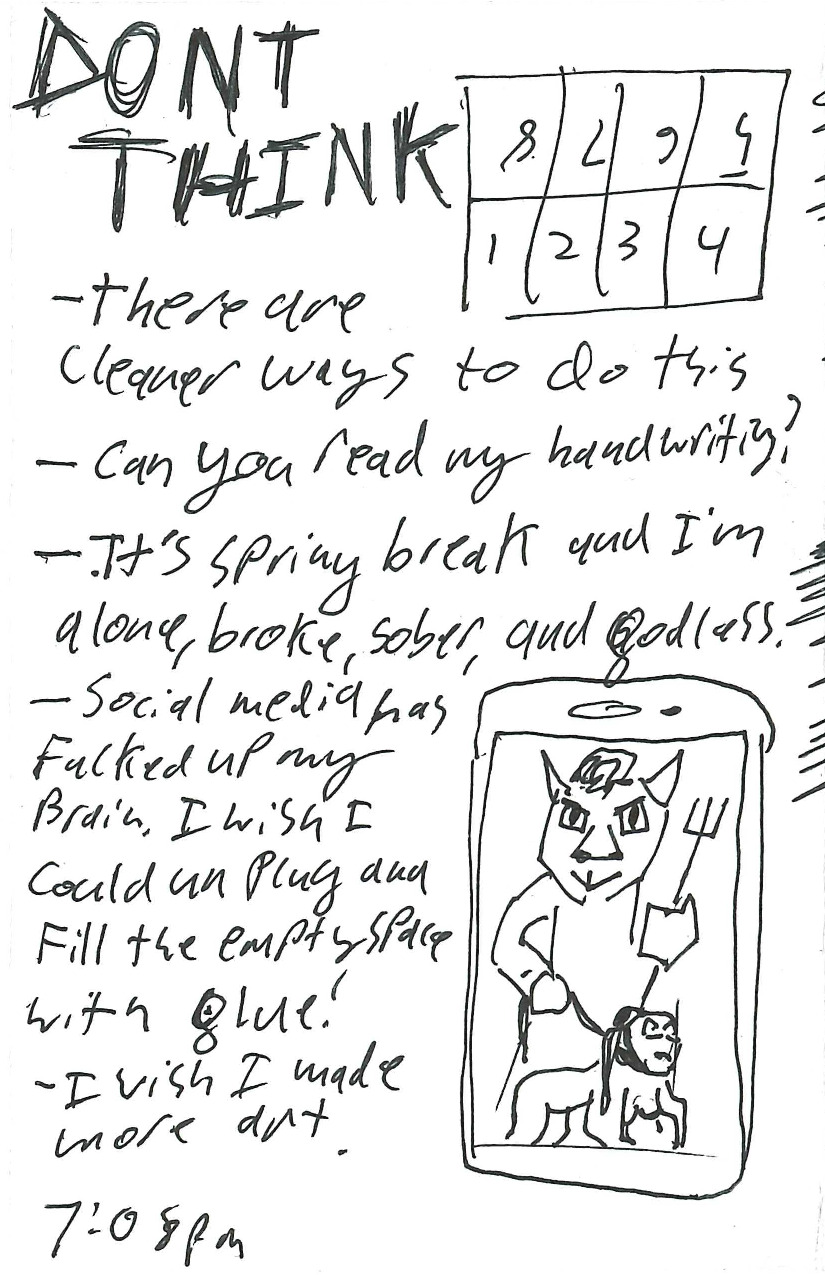 DONT
THINK
8 7 6 5
1 2 3 4
- there are
cleaner ways to do this
- Can you read my handwriting?
- It's spring break and I'm
alone, broke, sober, and godless.
- Social media has
Fucked up my
Brain. I wish I
Could un plug and
Fill the empty space
with glue!
- I wish I made
more art.
7:08pm